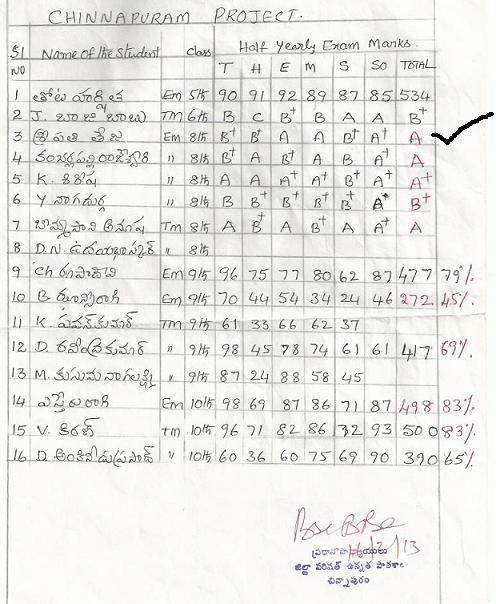 CHINNAPURAM PROJECT.
Half Yearly Exam Marks.
Sl NO Name of the Student class T H E M S So TOTAL
1 తోట హర్షిత Em 5th 90 91 92 89 87 85 534
2 J. బాజి బాబు TM 6th B C B+ B A A B+
3 శ్రీపతి తేజ Em 8th B+ B+ A A B+ A+ A
4 Em 8th B+ A B+ A B A+ A
5 K. శిరీష " 8th A A A+ A B+ A+ A+
6 Y నాగదుర్గ " 8th B B B+ B+ B+ A+ B+
7 అనూష Tm 8th A B+ A B+ A A+ A
8 D.N. ఉదయభాస్కర్ " 8th
9 Ch రూపాదేవి Em 9th 96 75 77 80 62 87 477 79%
10 B. ఝాన్సీరాణి Em 9th 70 44 54 34 24 46 272 45%
11 K. పవన్ కుమార్ TM 9th 61 33 66 62 37
12 D. రవీంద్రకుమార్ " 9th 98 45 78 74 61 61 417 69%
13 M. కుసుమ నాగలక్ష్మి " 9th 87 24 88 58 45
14 ఎస్తేరురాణి Em 10th 98 69 87 86 71 87 498 83%
15 V. కిరణ్ TM 10th 96 71 82 86 72 93 500 83%
16 D. అంకినీడుప్రసాద్ " 10th 60 36 60 75 69 90 390 65%
ప్రధానోపాధ్యాయులు
జిల్లా పరిషత్ ఉన్నత పాఠశాల
చిన్నాపురం